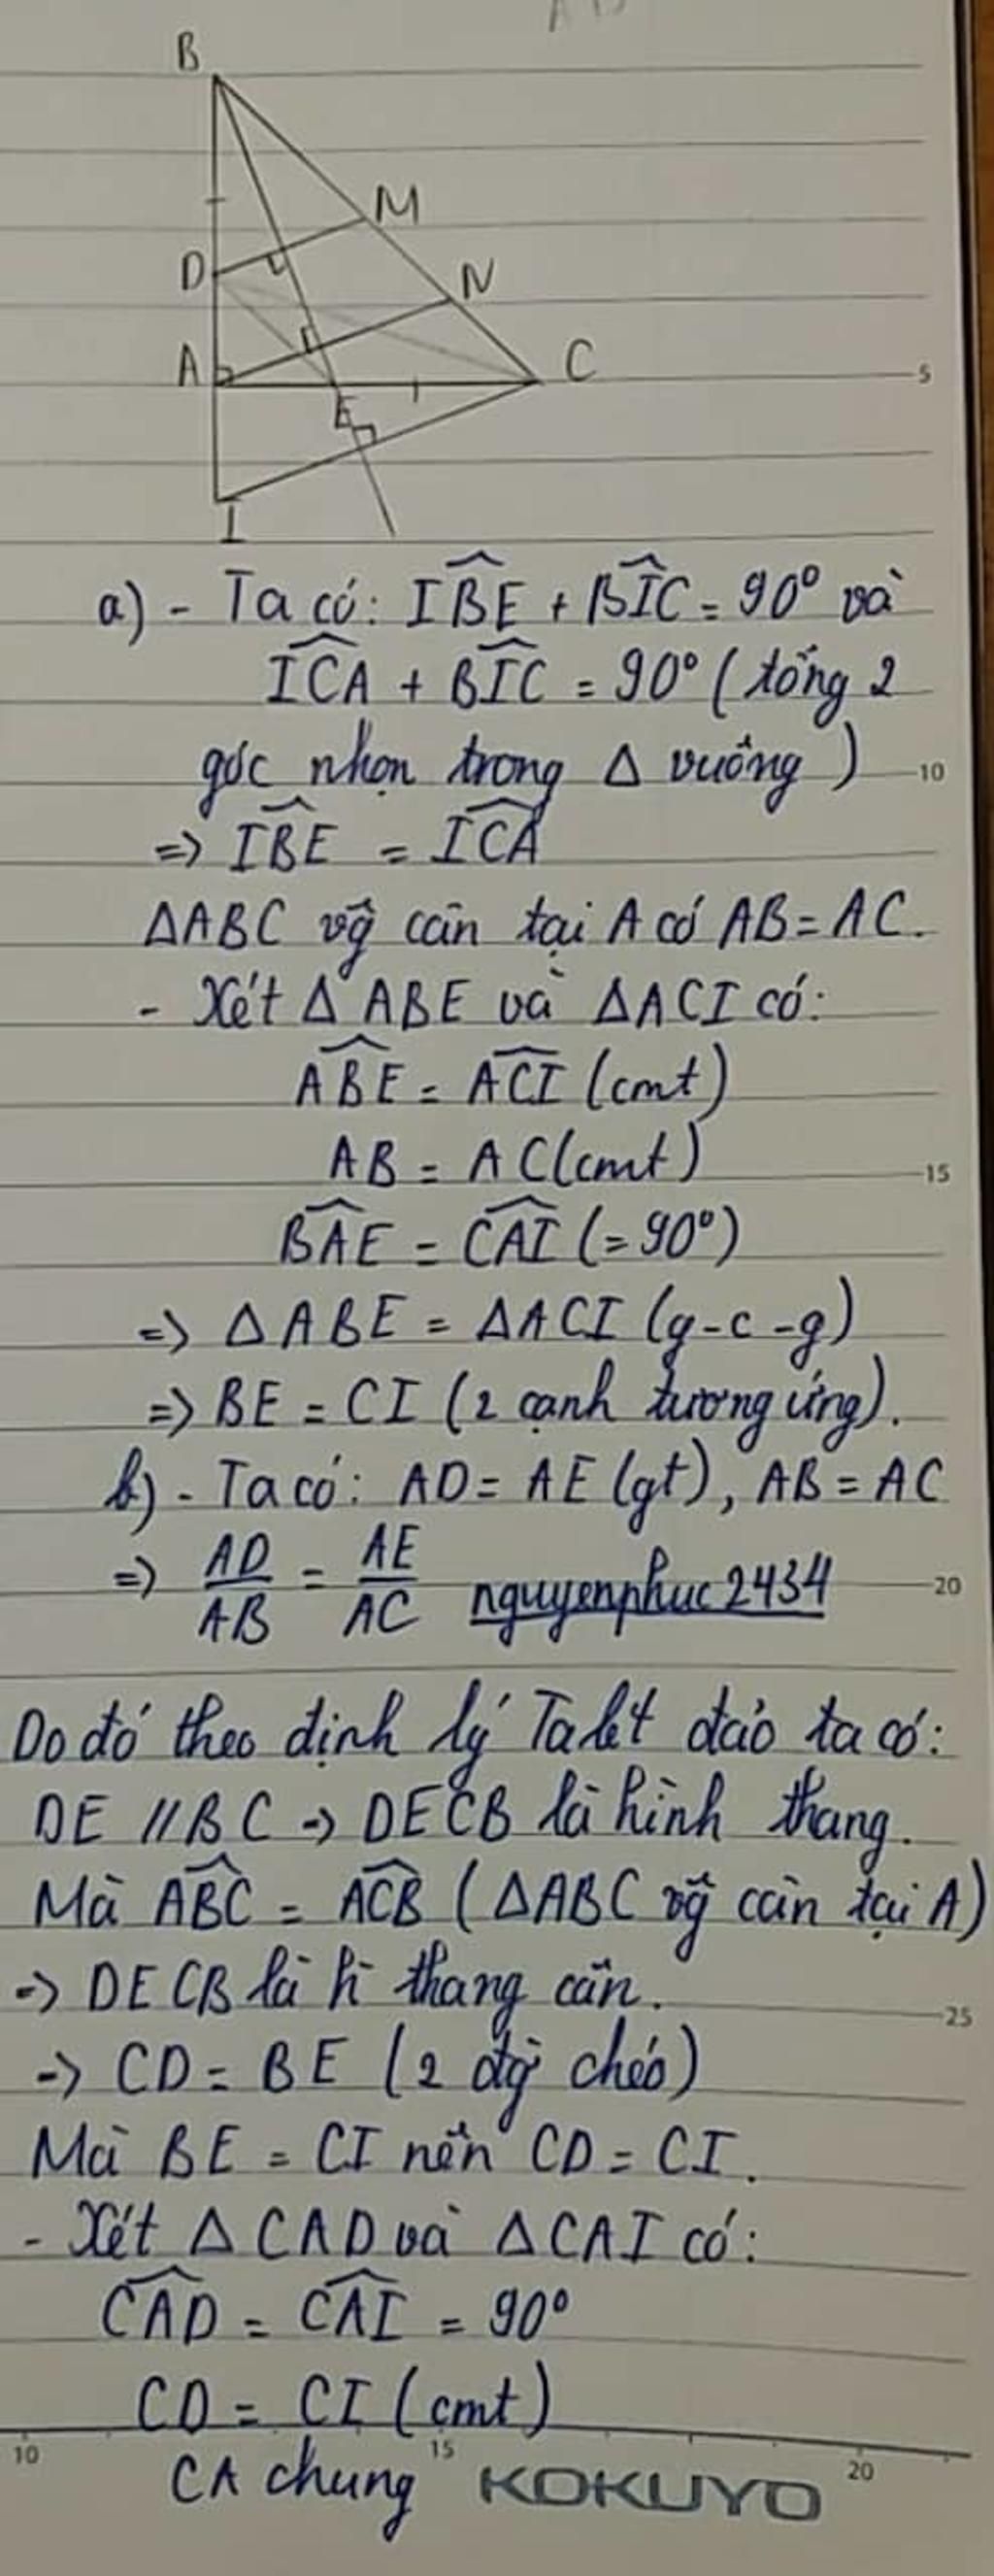 B
M
D
N
A
C
5
E
I
a) - Ta có: IBE + BIC = 90° và
ICA + BIC = 90° (tổng 2
góc nhọn trong Δ vuông)
10
=> IBE = ICA
ΔABC vg cân tại A có AB = AC.
- Xét Δ ABE và ΔACI có:
ABE = ACI (cmt)
AB = AC (cmt)
15
BAE = CAI (= 90°)
=> ΔABE = ΔACI (g-c-g)
=> BE = CI (2 cạnh tương ứng).
b) - Ta có: AD = AE (gt), AB = AC
=> AD/AB = AE/AC nguyenphuc2434
20
Do đó theo định lý Talet đảo ta có:
DE // BC -> DECB là hình thang.
Mà ABC = ACB (ΔABC vg cân tại A)
-> DECB là h thang cân.
25
-> CD = BE (2 đg chéo)
Mà BE = CI nên CD = CI.
- Xét Δ CAD và Δ CAI có:
CAD = CAI = 90°
CD = CI (cmt)
10 15 20
CA chung KOKUYO